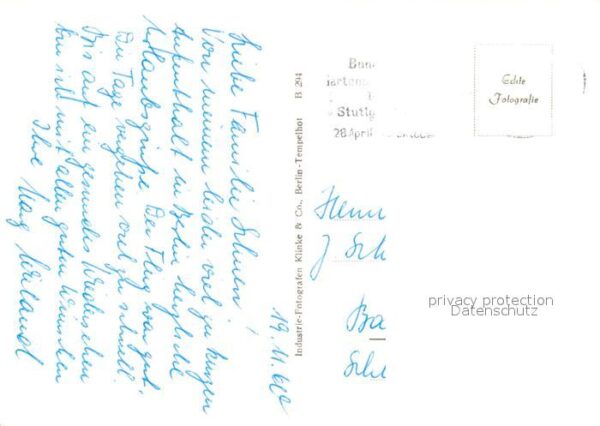 19. 11. 60
Liebe Familie
Von meinem leider viel zu kurzen
Aufenthalt in Berlin herzliche
Urlaubsgrüße. Der Flug war gut.
Die Tage vergehen viel zu schnell.
Bis auf ein gesundes Wiedersehen
bin ich mit allen guten Wünschen
Ihre
Industrie-Fotografen Klinke & Co., Berlin-Tempelhof B 294
Bun
Stuttg
28 April
Echte
Fotografie
Herrn
J. Sch
Ba
Sch
privacy protection
Datenschutz